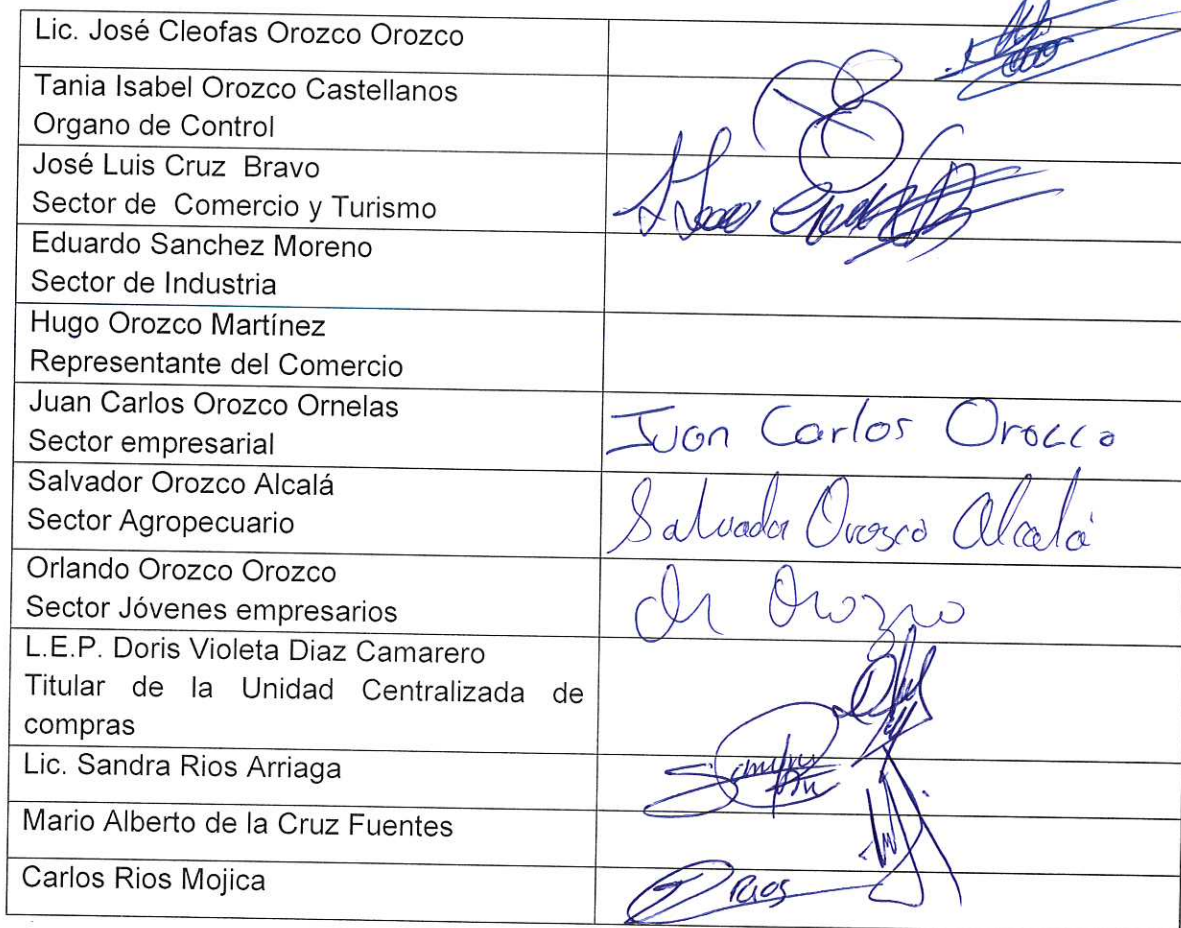 Lic. José Cleofas Orozco Orozco
Tania Isabel Orozco Castellanos
Organo de Control
José Luis Cruz Bravo
Sector de Comercio y Turismo
Eduardo Sanchez Moreno
Sector de Industria
Hugo Orozco Martínez
Representante del Comercio
Juan Carlos Orozco Ornelas
Sector empresarial
Juan Carlos Orozco
Salvador Orozco Alcalá
Sector Agropecuario
Salvador Orozco Alcalá
Orlando Orozco Orozco
Sector Jóvenes empresarios
Orozco
L.E.P. Doris Violeta Diaz Camarero
Titular de la Unidad Centralizada de
compras
Lic. Sandra Rios Arriaga
Mario Alberto de la Cruz Fuentes
Carlos Rios Mojica
Rios